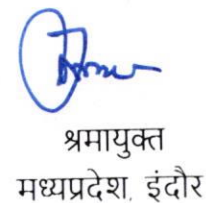 श्रमायुक्त
मध्यप्रदेश, इंदौर